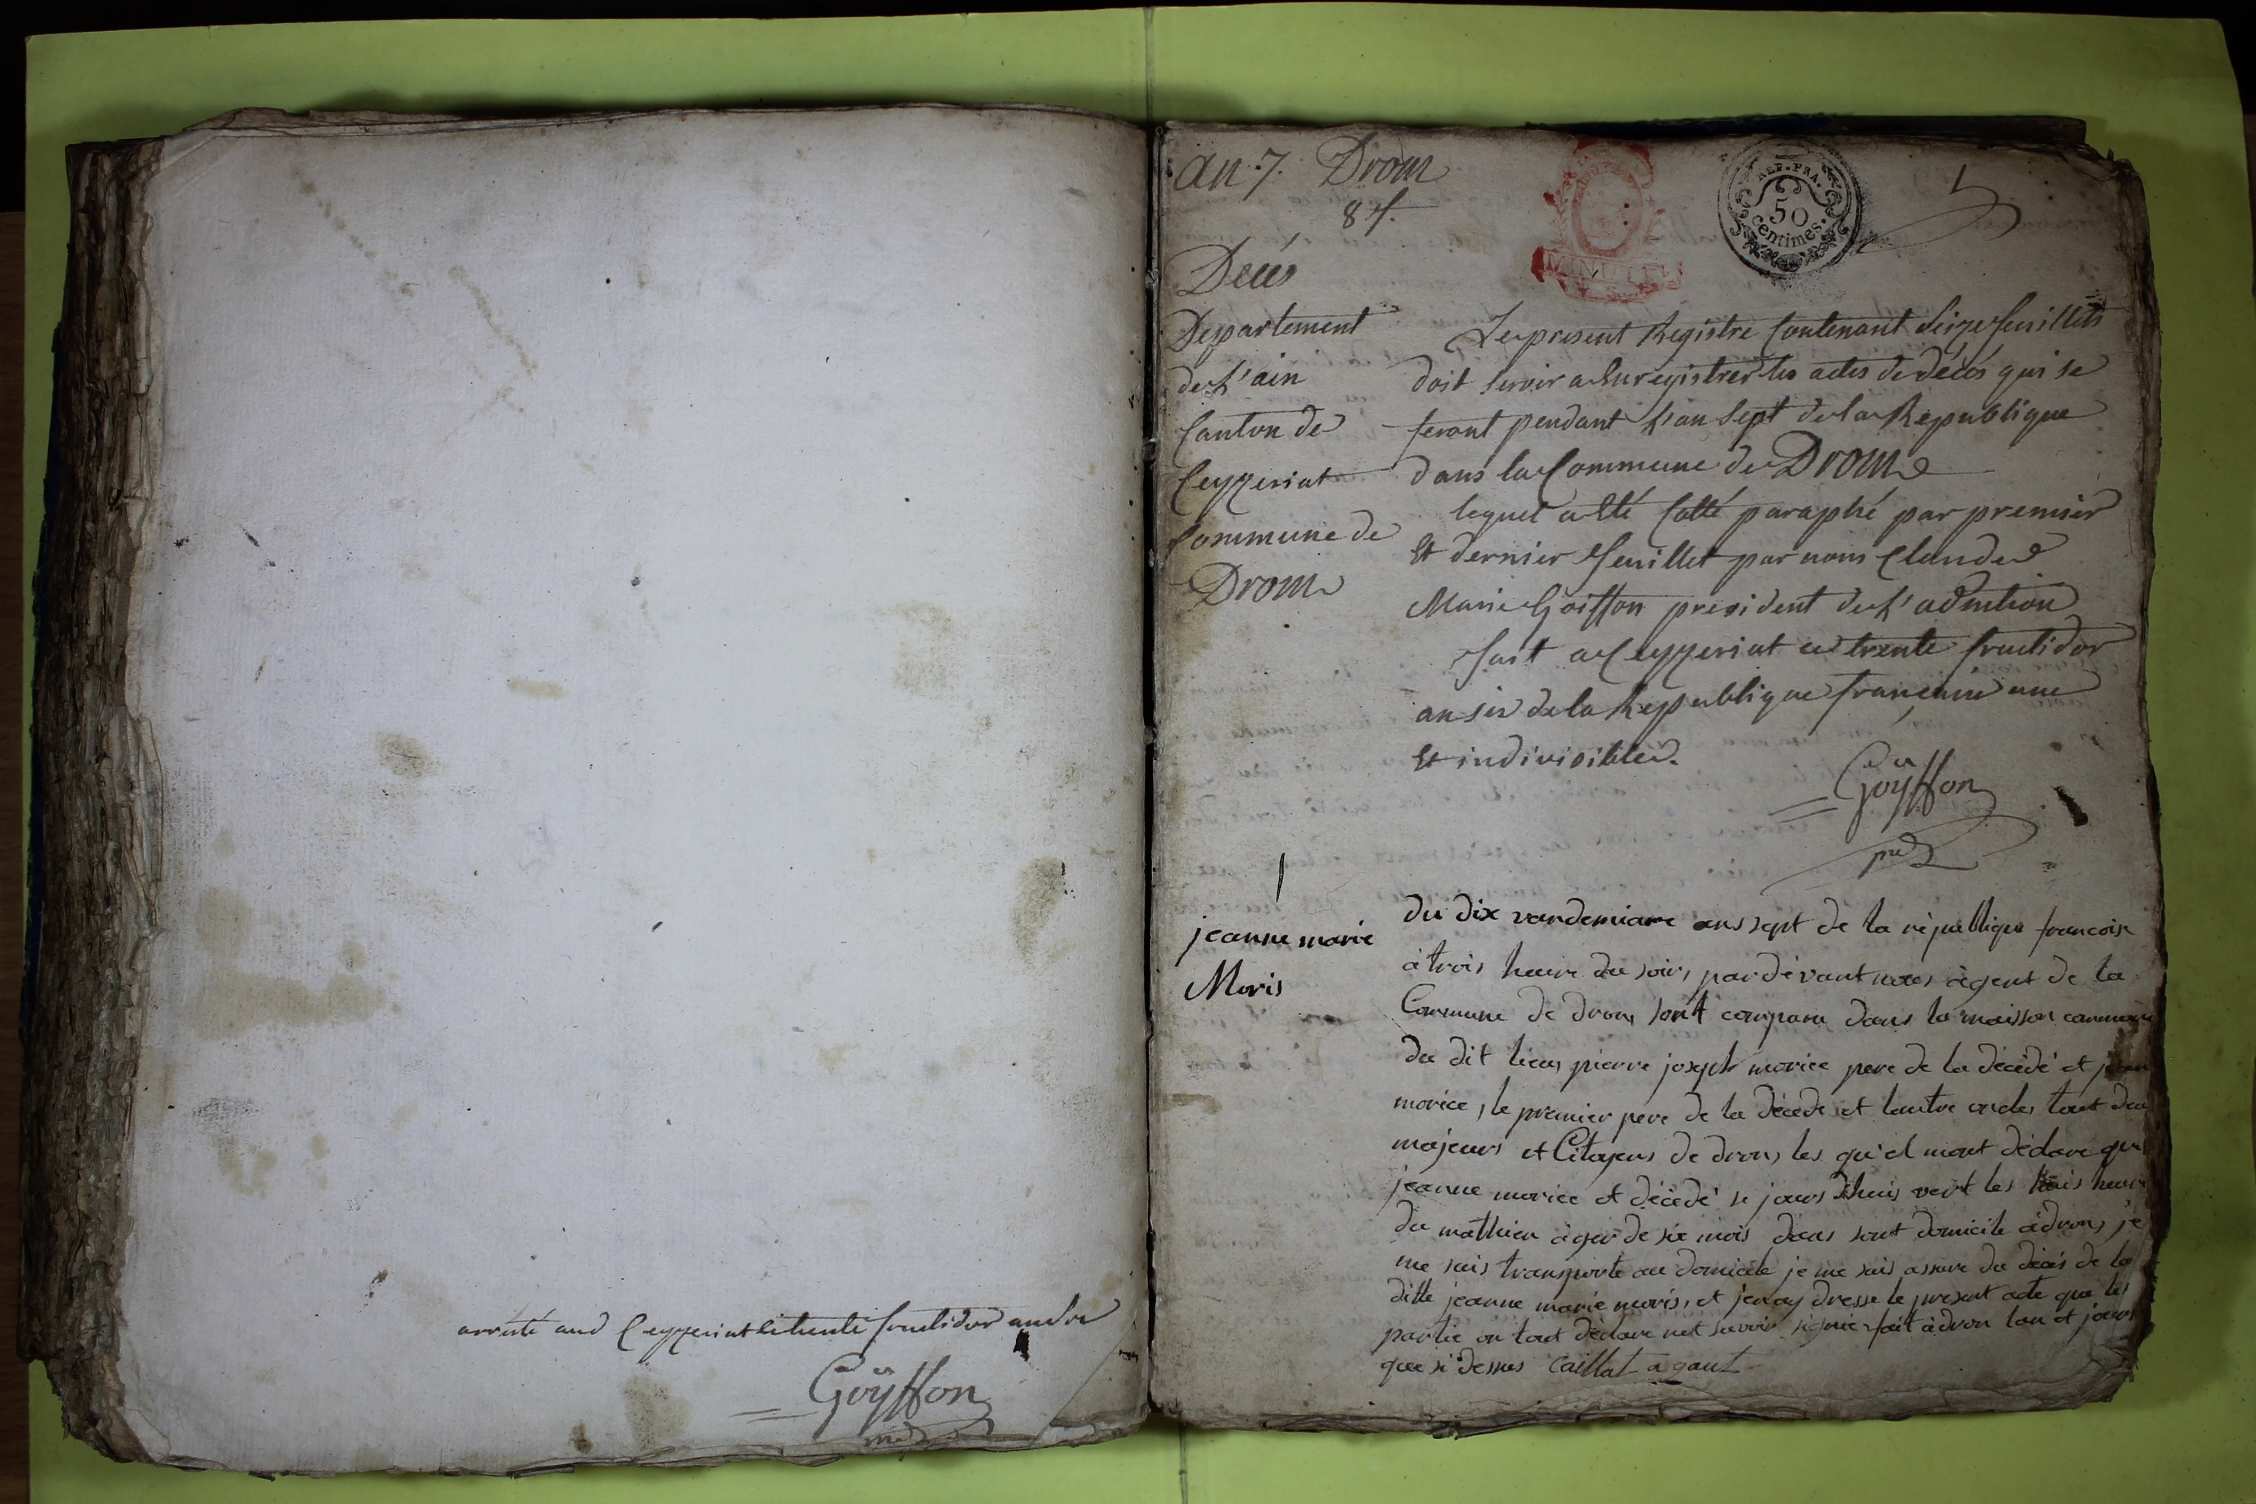 arrêté aud Ceyzeriat le trente fructidor an six
Goÿffon
an 7. Drom
8 f.
REP. FRA.
50
centimes.
1
Décés
Departement
de L'ain
Canton de
Ceyzeriat
Commune de
Drom
Le present Registre Contenant Seize feuillets
doit servir a Enregistrer les actes de décés qui se
feront pendant L'an Sept de la Republique
dans la Commune de Drom
lequel a Eté Cotté paraphé par premier
Et dernier feuillet par nous Claude
Marie Goiffon president de L'admtion
fait a Ceyzeriat ce trente fructidor
an six de la Republique française une
Et indivisible.
Goÿffon
1
jeanne marie
Moris
du dix vandemiare ans sept de la république francoise
à trois heure du soir, par dévant nous àgent de la
Commune de drom, sont comparu dans la maisson commune
du dit lieu, pierre joseph morice pere de la décédé et jean
morice, le premier pere de la décédé, et lautre oncle, tout deu
majeurs et Citoyens de drom, les qu'el mont déclare que
jeanne morice et décédé se jours dhuis vert les huis heure
du mathien àger de six mois dans sont domicile à drom, je
me suis transporte au domicile je me suis assure du décés de la
ditte jeanne marie moris, et jenay dresse le present acte que les
partie on tout déclare net savoir signier fait à drom lan et jours
que si dessus Caillat agant